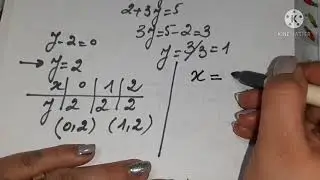 2+3y=5
3y=5-2=3
y-2=0
y=3/3=1
→ y=2
x 0 1 2
y 2 2 2
(0,2) (1,2)
x =
KINEMASTER